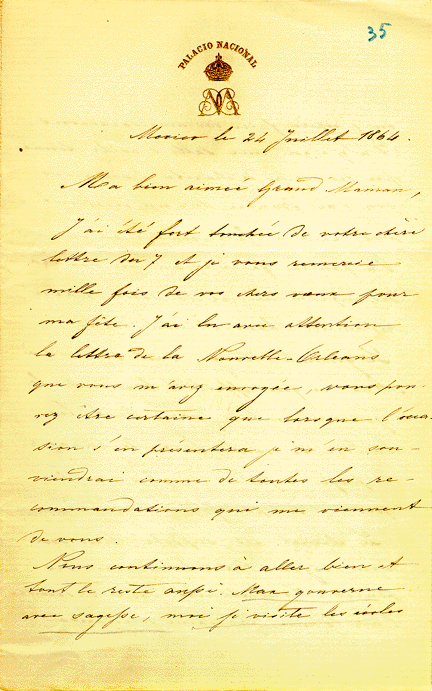 35
PALACIO NACIONAL
Mexico le 24 Juillet 1864.
Ma bien aimée Grand'Maman,
J'ai été fort touchée de votre chère
lettre du 7 et je vous remercie
mille fois de vos chers vœux pour
ma fête. J'ai lu avec attention
la lettre de la Nouvelle-Orléans
que vous m'avez envoyée, vous pou-
vez être certaine que lorsque l'occa-
sion s'en présentera je m'en sou-
viendrai comme de toutes les re-
commandations qui me viennent
de vous.
Nous continuons à aller bien et
tout le reste aussi. Max gouverne
avec sagesse, moi je visite les écoles